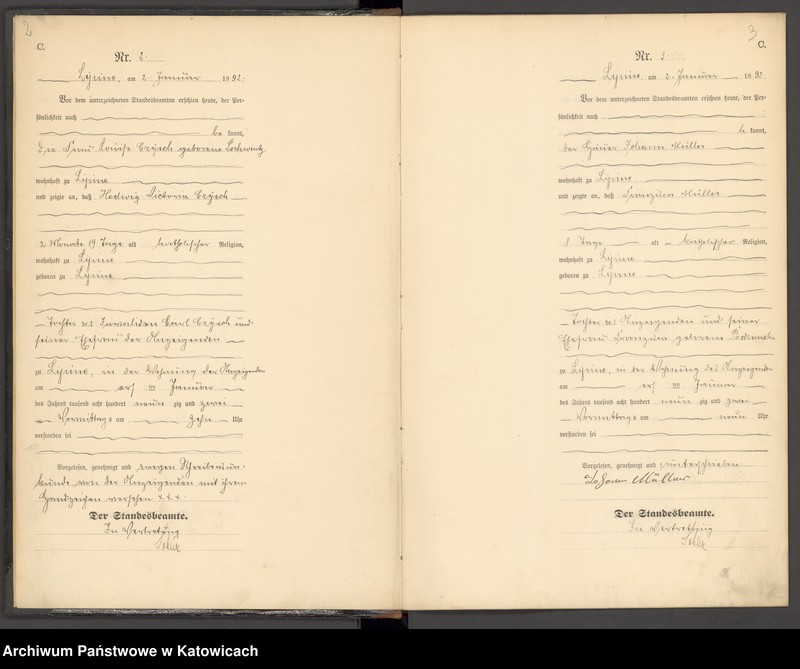 2
C.
Nr. 2.
Lipine, am 2. Januar 1892.
Vor dem unterzeichneten Standesbeamten erschien heute, der Per-
sönlichkeit nach
be kannt,
die Frau Louise Czysch geborene
wohnhaft zu Lipine
und zeigte an, daß Hedwig Victoria Czysch
2 Monate 19 Tage alt katholischer Religion,
wohnhaft zu Lipine
geboren zu Lipine
Tochter des Invaliden Carl Czysch und
seiner Ehefrau der Anzeigenden
zu Lipine, in der Wohnung der Anzeigenden
am ersten Januar
des Jahres tausend acht hundert neun zig und zwei
Vormittags um zehn Uhr
verstorben sei
Vorgelesen, genehmigt und wegen Schreibensun-
kunde von der Anzeigenden mit ihrem
Handzeichen versehen + + +
Der Standesbeamte.
In Vertretung
3
C.
Nr. 3.
Lipine, am 2. Januar 1892
Vor dem unterzeichneten Standesbeamten erschien heute, der Per-
sönlichkeit nach
be kannt,
der Häuer Johann Müller
wohnhaft zu Lipine
und zeigte an, daß Franziska Müller
8 Tage alt katholischer Religion,
wohnhaft zu Lipine
geboren zu Lipine
Tochter des Anzeigenden und seiner
Ehefrau Franziska geborene
zu Lipine, in der Wohnung des Anzeigenden
am ersten Januar
des Jahres tausend acht hundert neun zig und zwei
Vormittags um neun Uhr
verstorben sei
Vorgelesen, genehmigt und unterschrieben
Johann Müller
Der Standesbeamte.
In Vertretung
Archiwum Państwowe w Katowicach